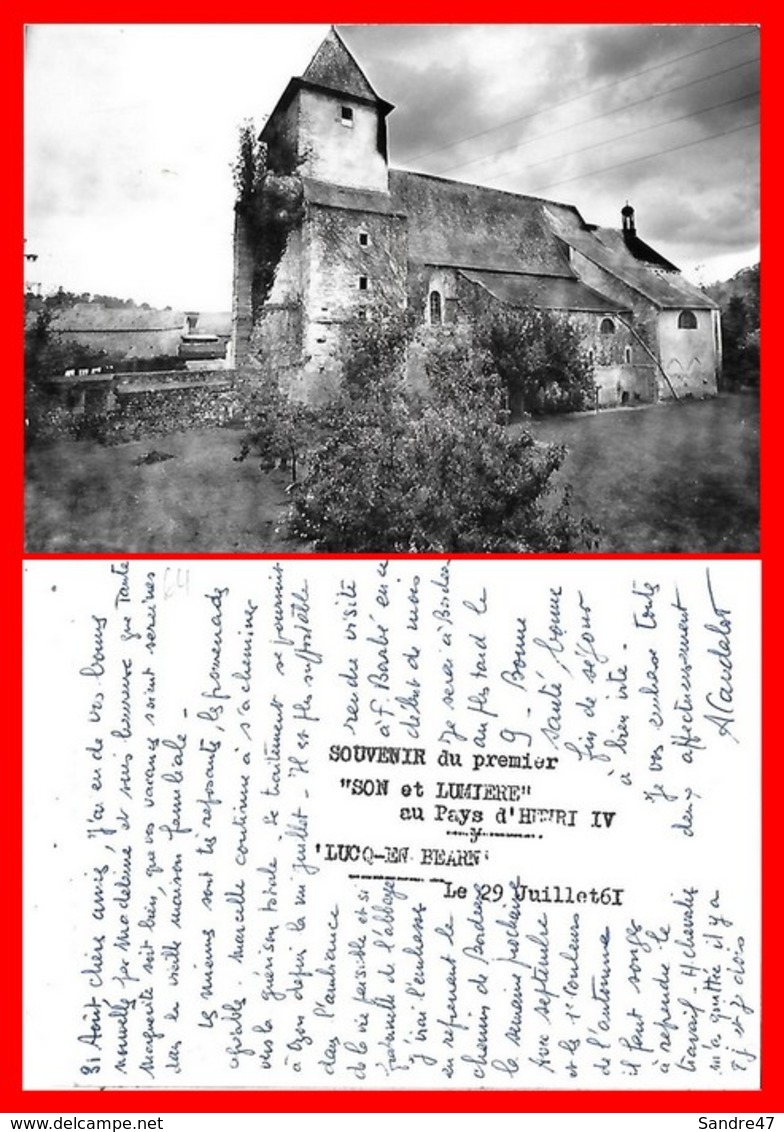 31 Août chers amis, J'ai eu de vos bonnes
nouvelles par Madeleine et suis heureuse que Tante
Marguerite soit bien, que vos vacances soient sereines
dans la vieille maison familiale -
Les miennes sont très reposantes, les promenades
agréables. Marcelle continue à s'acheminer
vers la guérison totale - Le traitement se poursuit
à depuis la mi juillet - Il est plus supportable
dans l'ambiance
de la vie paisible et si
de l'abbaye
J'irai l'embrasser
en reprenant le
chemin de Bordeaux
la semaine prochaine
Avec septembre
et les 1ères couleurs
de l'automne
il faut songer
à reprendre le
travail - H. chevalier
m'a quittée il y a
2 j. et je dois
rendre visite
à F. Barbé en ce
début de mois
Je serai à Bordeaux
au plus tard le
9 - Bonne
santé, bonne
fin de séjour
à bien vite -
Je vous embrasse toutes
deux affectueusement
64
SOUVENIR du premier
"SON et LUMIERE"
au Pays d'HENRI IV
'LUCQ-EN BEARN'
Le 29 Juillet6I
Sandre47